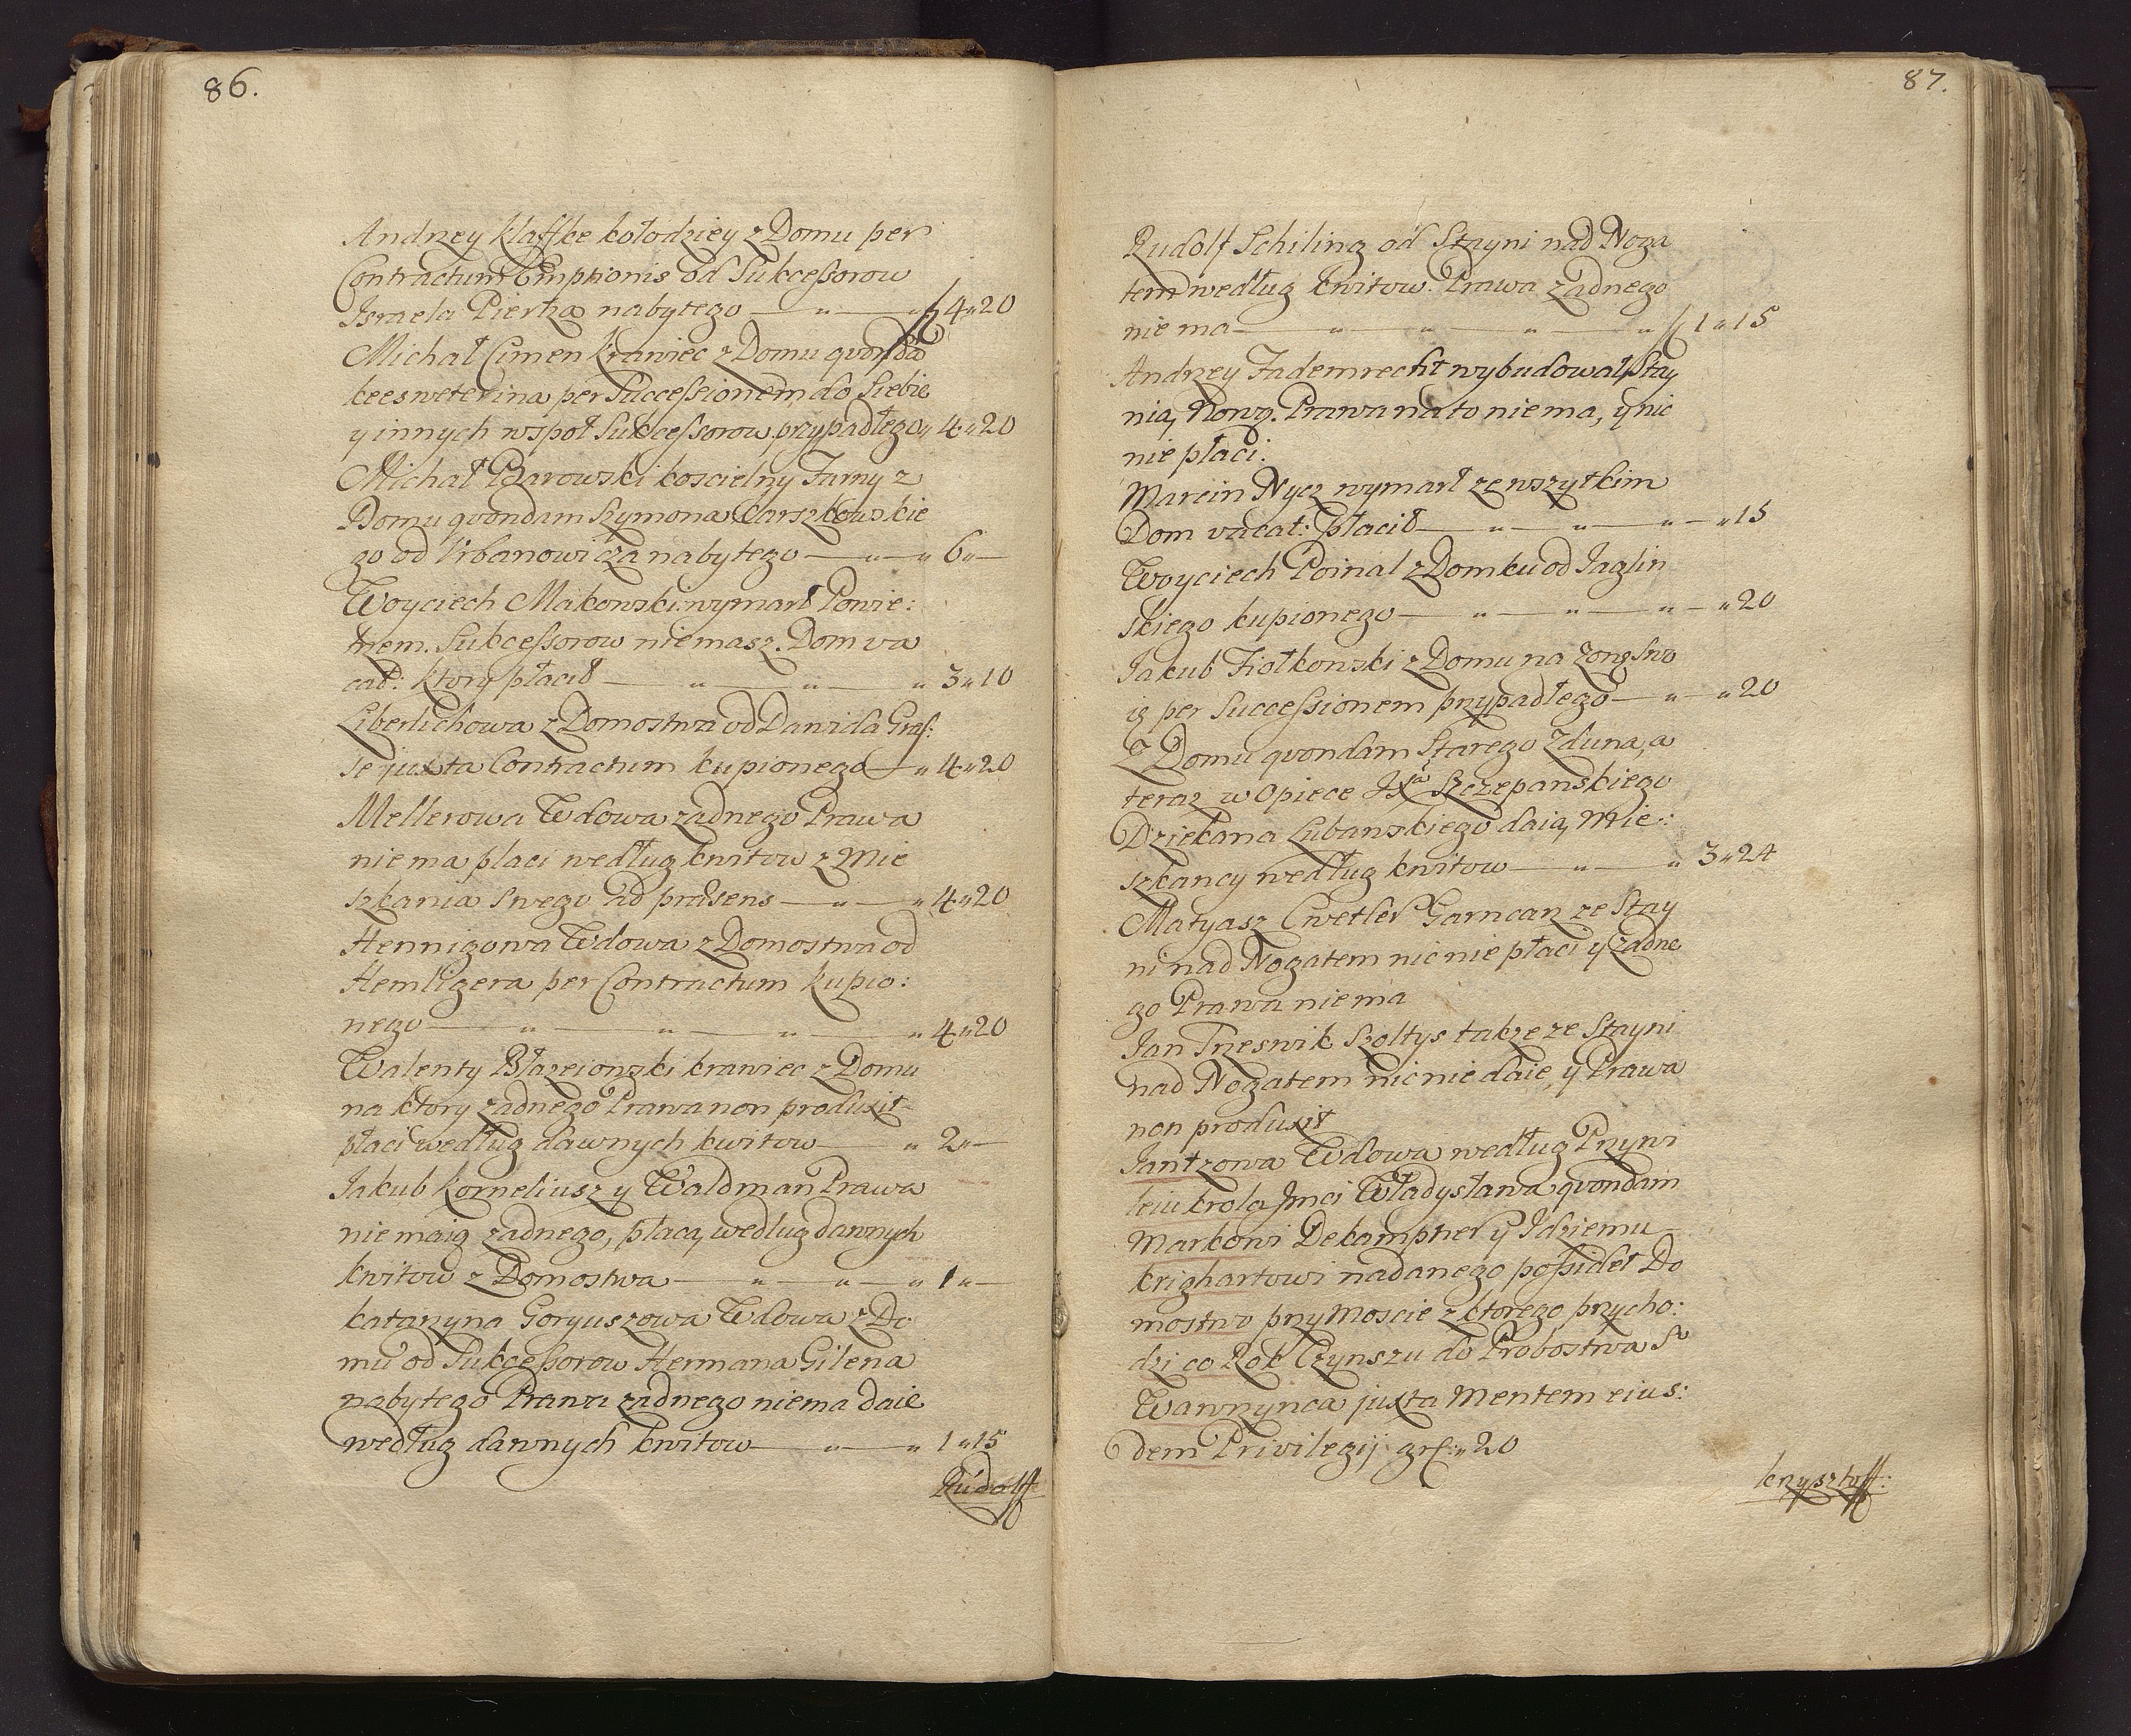 86.
Andrzey Klaffke kołodziey z Domu per
Contractum Emptionis od Sukcessorow
Israela Piertza nabytego — „ — „ fl 4 „ 20
Michał Cimen Krawiec z Domu qvondā
Keesweterina per Successionem do Siebie
y innych wspoł Sukcessorow przypadłego „ 4 „ 20
Michał Barowski koscielny Farny z
Domu qvondam Szymona Karszkowskie
go od Vrbanowicza nabytego — „ — „ 6 „ —
Woyciech Makowski wymarł Powie:
trzem. Sukcessorow niemasz. Dom va
cat: ktory płacił — „ — „ — „ 3 „ 10
Liberlichowa z Domostwa od Dawida Gras:
se juxta Contractum kupionego — „ 4 „ 20
Mellerowa Wdowa zadnego Prawa
nie ma płaci według kwitow z Mie
szkania Swego ad præsens — „ — „ 4 „ 20
Hennigowa Wdowa z Domostwa od
Hemligera per Contractum kupio:
nego — „ — „ — „ — „ 4 „ 20
Walenty Błazeiowski krawiec z Domu
na ktory zadnego Prawa non produxit
płaci według dawnych kwitow — „ 2 „ —
Jakub Korneliusz y Waldman Prawa
nie maią zadnego, płacą według dawnych
kwitow z Domostwa — „ — „ — „ 1 „ —
Katarzyna Goryuszowa Wdowa z Do
mu od Sukcessorow Hermana Gilena
nabytego Prawa zadnego niema daie
według dawnych kwitow — „ — „ 1 „ 15
Rudolff
87.
Rudolf Schiling od Stayni nad Noga
tem według kwitow. Prawa zadnego
nie ma — „ — „ — „ — „ fl 1 „ 15
Andrzey Fademrecht wybudował Stay
nią Nową. Prawa na to nie ma, y nic
nie płaci.
Marcin Nycz wymarł ze wszytkim
Dom vacat: płacił — „ — „ — „ — „ 15
Woyciech Poinal z Domku od Jaglin
skiego kupionego — „ — „ — „ — „ 20
Jakub Fiołkowski z Domu na Zonę Swo
ię per Successionem przypadłego — „ — „ 20
Z Domu qvondam Starego Zduna, a
teraz w Opiece JXa Szczepanskiego
Dziekana Lubanskiego daią Mie:
szkancy według kwitow — „ — „ 3 „ 24
Matyasz Cwetler Garncarz ze Stay
ni nad Nogatem nic nie płaci y zadne
go Prawa nie ma
Jan Trzesnik Szoltys takze ze Stayni
nad Nogatem nic nie daie, y Prawa
non produxit
Jantzowa Wdowa według Przywi
leiu Krola Jmci Władysława qvondam
Markowi Dekampner y Idziemu
Krighartowi nadanego possidet Do
mostwo przy Moscie z ktorego przycho:
dzi co Rok Czynszu do Probostwa So
Wawrzynca juxta Mentem eius:
dem Privilegij grs: „ 20
Krzysztoff: